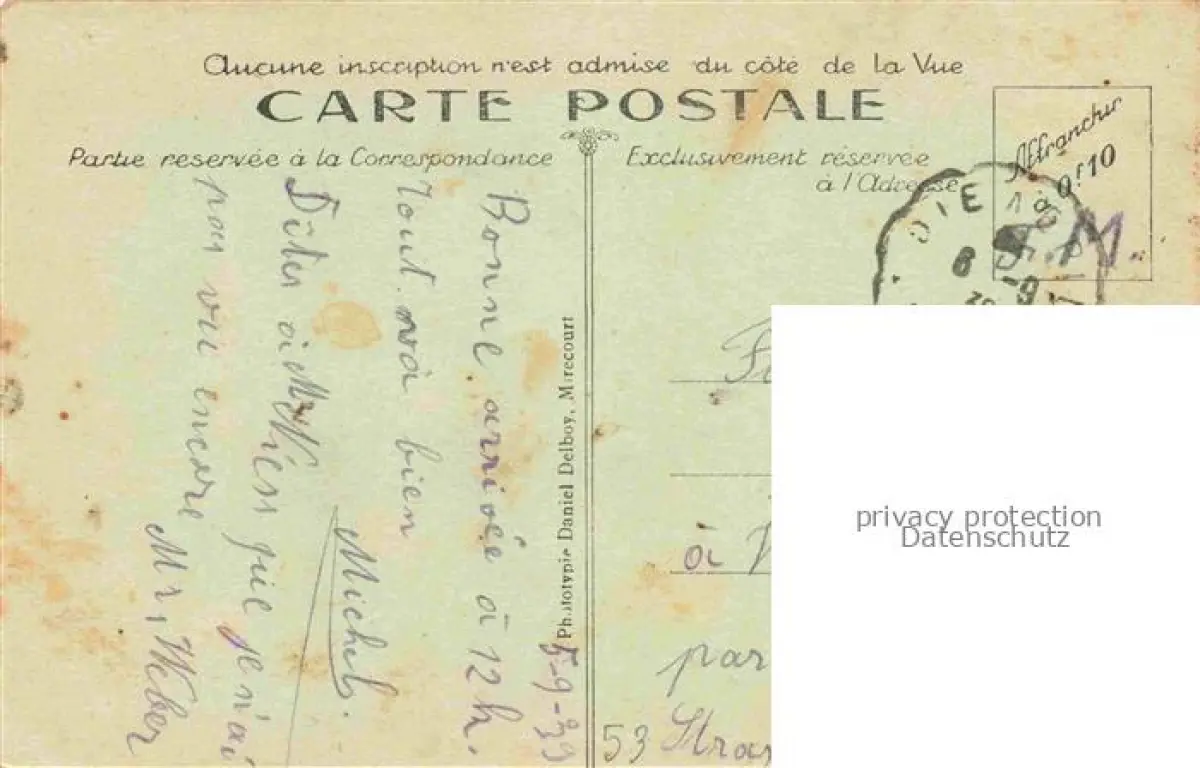 Aucune inscription n'est admise du côté de la Vue
CARTE POSTALE
Partie reservée à la Correspondance
Exclusivement réservée
à l'Adresse
Affranchir
0f10
DIE
8 -9
F.M.
5-9-39
Bonne arrivée à 12h.
Tout va bien
Michel.
Dites à Mr
que je n'ai
pas vu encore
Mr, Weber
Phototypie Daniel Delboy, Mirecourt
à
par
53 Stras
privacy protection
Datenschutz